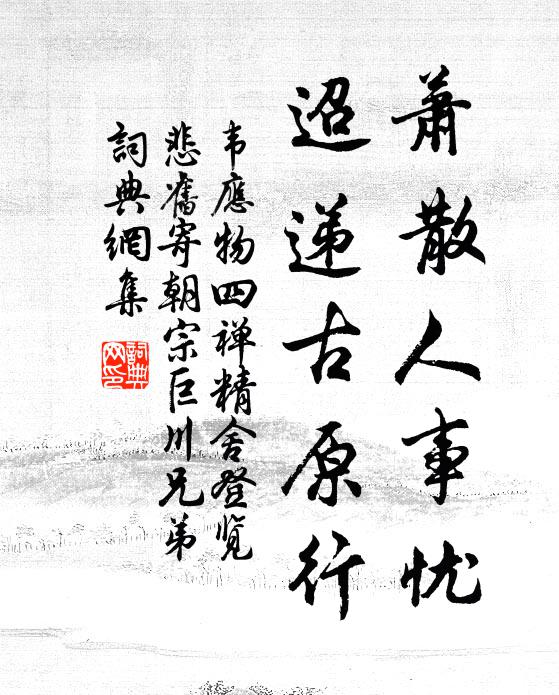 萧散人事忧
迢递古原行
韦應物四禅精舍登览
悲舊寄朝宗巨川兄弟
詞典網集
詞典网印